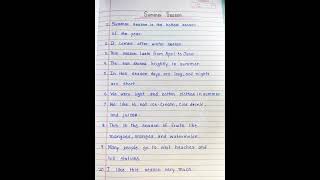 Summer Season
1. Summer Season is the hottest season
of the year.
2. It comes after winter season.
3. This season lasts from April to June.
4. The sun shines brightly in summer.
5. In this season days are long and nights
are short.
6. We wear light and cotton clothes in summer.
7. We like to eat ice-cream, cold drink,
and juices.
8. This is the season of fruits like
mangoes, oranges and watermelon.
9. Many people go to visit beaches and
hill stations.
10. I like this season very much.